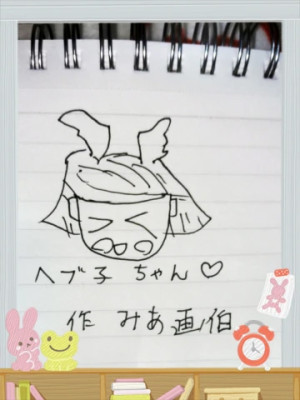 ヘブ子 ちゃん♡
作 みあ画伯